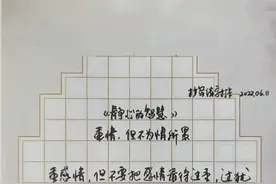 2022.06.11
《静心的智慧》
重情，但不为情所累
重感情，但不要把感情看得过重，过犹